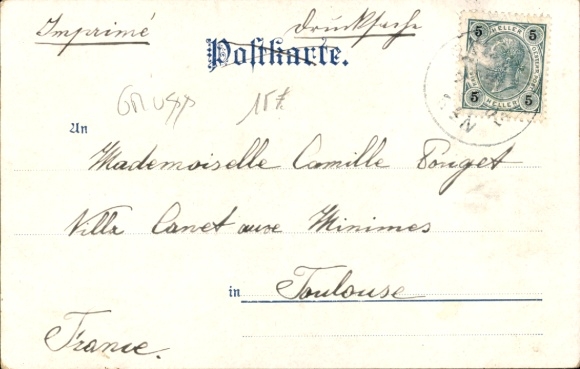 Imprimé Drucksache
Postkarte.
5 HELLER 5
5 HELLER 5
15f
An
Mademoiselle Camille Pouget
Villa Canet aux Minimes
in Toulouse
France.